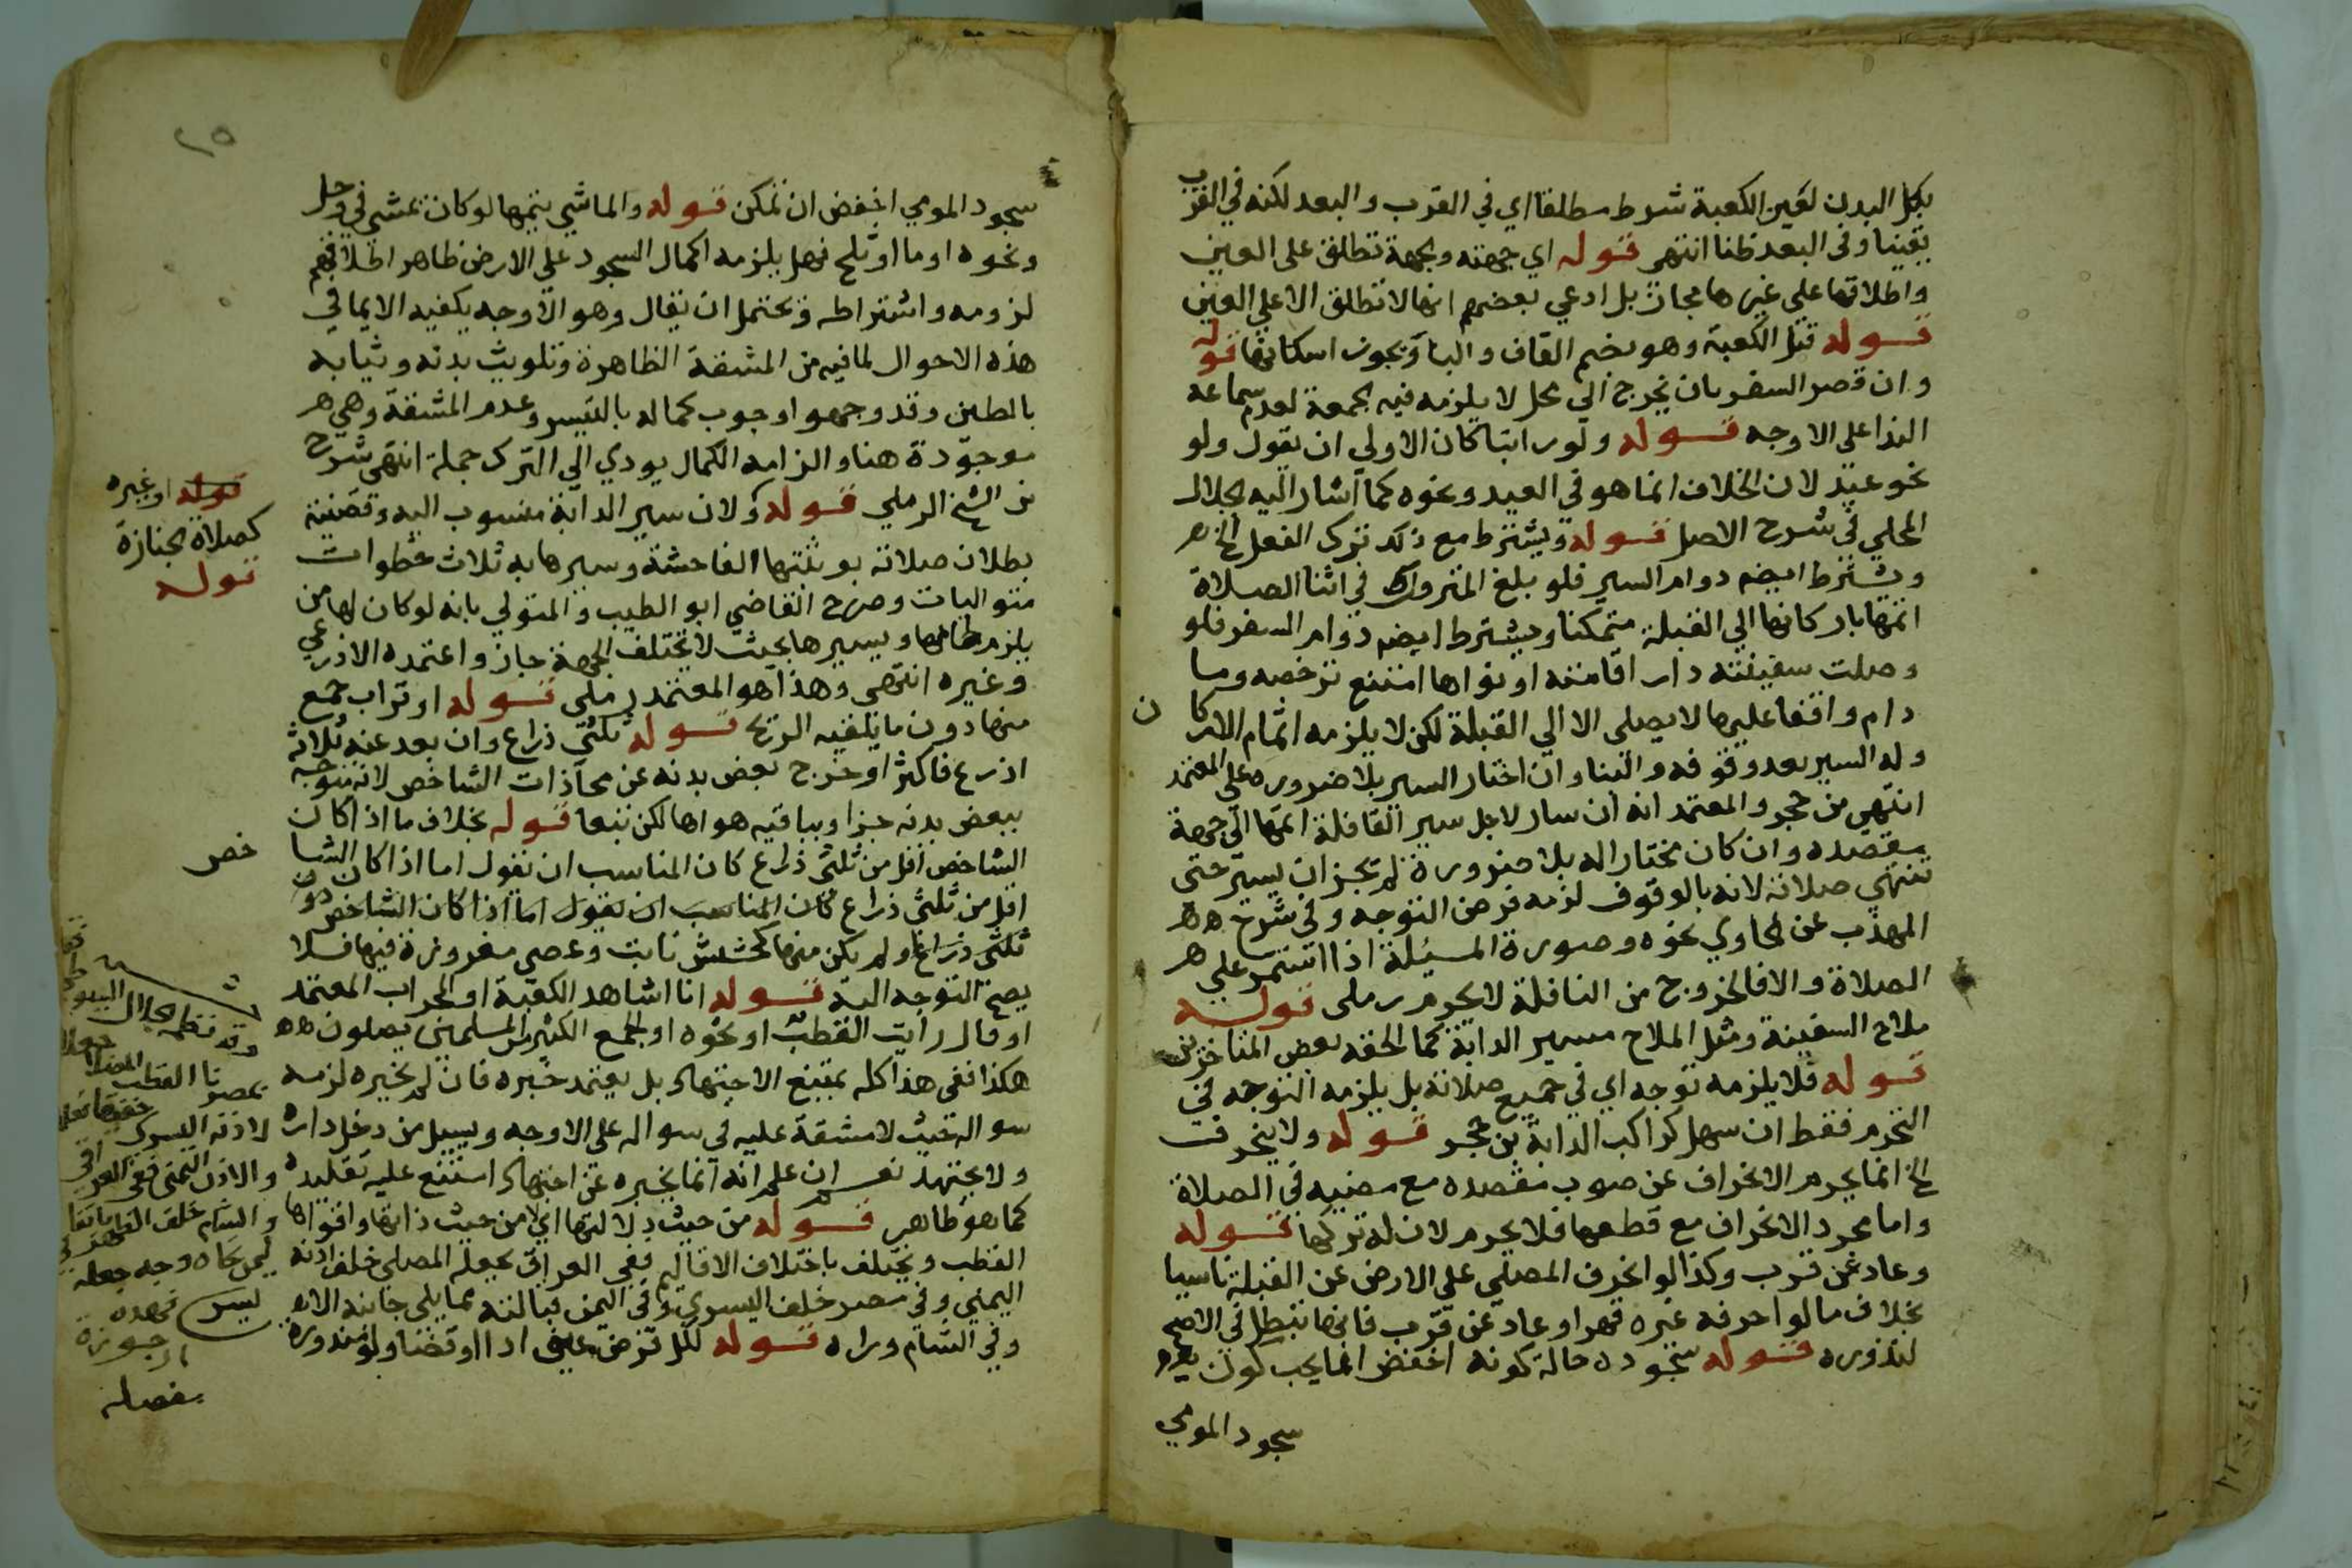 بكل البدن لعين الكعبة شرط مطلقا اي في القرب والبعد لكنه في القرب
يقينا وفي البعد ظنا انتهى قوله اي جهته وجهة تطلق على العين
واطلاقها على غيرها مجاز بل ادعي بعضهم انها لا تطلق الا على العين
قوله قبل الكعبة وهو بضم القاف والبا ويجوز اسكانها قوله
وان قصر السفر بان يخرج الي محل لا يلزمه فيه الجمعة لعدم سماعه
الندا على الاوجه قوله ولو راتبا كان الاولي ان يقول ولو
نحو عيد لان الخلاف انما هو في العيد ونحوه كما اشار اليه الجلال
المحلي في شرح الاصل قوله ويشترط مع ذلك ترك الفعل الخ
ويشترط ايضم دوام السير فلو بلغ المتروك في اثنا الصلاة
اتمها باركانها الي القبلة متمكنا ويشترط ايضم دوام السفر فلو
وصلت سفينته دار اقامته او نواها امتنع ترخصه وما
دام واقفا عليها لا يصلى الا الي القبلة لكن لا يلزمه اتمام الاركان
وله السير بعد وقوفه والبنا وان اختار السير بلا ضروره على المعتمد
انتهى من حجر والمعتمد انه ان سار لاجل سير القافلة اتمها الي جهة
مقصده وان كان مختارا له بلا ضرورة لم يجز ان يسير حتى
تنتهي صلاته لانه بالوقوف لزمه فرض التوجه وفي شرح
المهذب عن الحاوي نحوه وصورة المسئلة اذا استمر على
الصلاة والا فالخروج من النافلة لا يحرم رملى قوله
ملاح السفينة ومثل الملاح مسير الدابة كما الحقه بعض المتاخرين
قوله فلا يلزمه توجه اي في جميع صلاته بل يلزمه التوجه في
التحرم فقط ان سهل كراكب الدابة بن حجر قوله ولا ينحرف
الخ انما يحرم الانحراف عن صوب مقصده مع مضيه في الصلاة
واما مجرد الانحراف مع قطعها فلا يحرم لان له تركها قوله
وعاد عن قرب وكذا لو انحرف المصلي على الارض عن القبلة ناسيا
بخلاف ما لو احرفه غيره قهرا وعاد عن قرب فانها تبطل في الاصح
لندوره قوله سجوده حالة كونه اخفض انما يجب كون
سجود المومي
سجود المومي اخفض ان تمكن قوله والماشي يتمها لو كان يمشي في وحل
ونحوه او ما او ثلج فهل يلزمه اكمال السجود على الارض ظاهر اطلاقهم
لزومه واشتراطه ويحتمل ان يقال وهو الاوجه يكفيه الايما في
هذه الاحوال لما فيه من المشقة الظاهرة وتلويث بدنه وثيابه
بالطين وقد وجهوا وجوب كماله بالتيسر وعدم المشقة وهي
موجودة هنا والزامه الكمال يودي الي الترك جملة انتهى شرح
من الشخ الرملي قوله ولان سير الدابة منسوب اليه وقضيته
بطلان صلاته بوثبتها الفاحشة وسيرها به ثلاث خطوات
متواليات وصرح القاضي ابو الطيب والمتولي بانه لو كان لها من
يلزم لجامها ويسيرها بحيث لا تختلف الجهة جاز واعتمده الاذرعي
وغيره انتهى وهذا هو المعتمد رملى قوله او تراب جمع
منها دون ما يلقيه الريح قوله ثلثي ذراع وان بعد عنه ثلاثة
اذرع فاكثر او خرج بعض بدنه عن محاذات الشاخص لانه متوجه
ببعض بدنه جزا وبباقيه هواها لكن تبعا قوله بخلاف ما اذا كان
الشاخص اقل من ثلثي ذراع كان المناسب ان نقول اما اذا كان الشاخص
اقل من ثلثى ذراع كان المناسب ان يقول اما اذا كان الشاخص دون
ثلثى ذراع او لم يكن منها كحشيش نابت وعصى مغروزة فيها فلا
يصح التوجه اليه قوله انا اشاهد الكعبة او المحراب المعتمد
او قال رايت القطب او نحوه او الجمع الكثير من المسلمين يصلون
هكذا ففي هذا كله يمتنع الاجتهاد بل يعتمد خبره فان لم يخبره لزمه
سواله حيث لا مشقة عليه في سواله على الاوجه ويسيل من دخل داره
ولا يجتهد نعم ان علم انه انما يخبره عن اجتهاد امتنع عليه تقليده
كما هو ظاهر قوله من حيث دلالتها اي لا من حيث ذاتها واقواها
القطب ويختلف باختلاف الاقاليم ففي العراق يجعله المصلي خلف اذنه
اليمني وفي مصر خلف اليسرى وفي اليمن قبالته مما يلي جانبه الايسر
وفي الشام وراه قوله لكل فرض عيني ادا او قضا ولو منذوره
قوله او غيره
كصلاة جنازة
قوله
وقد نظم الجلال
بمصرنا القطب
لاذنه اليسرى
والاذن اليمنى ففي العراق
والشام خلف الظهر
ليمن تجاه وجه جعله
فهذه
ارجوزة
مفصله
٢٥